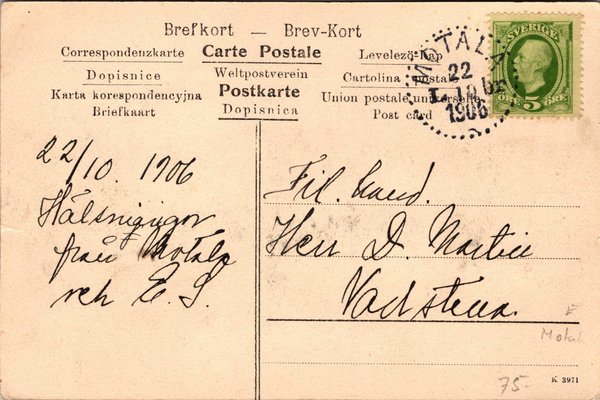 Brefkort — Brev-Kort
Correspondenzkarte Carte Postale Levelező-Lap
Dopisnice Weltpostverein Cartolina postale
Karta korespondencyjna Postkarte Union postale universelle
Briefkaart Dopisnica Post card
SVERIGE
ÖRE 5 ÖRE
MOTALA
22
10
1906
22/10. 1906
Hälsningar
från Motala
och E. S.
Fil. kand.
Herr D. Martin
Vadstena.
Motal
75-
K 3971